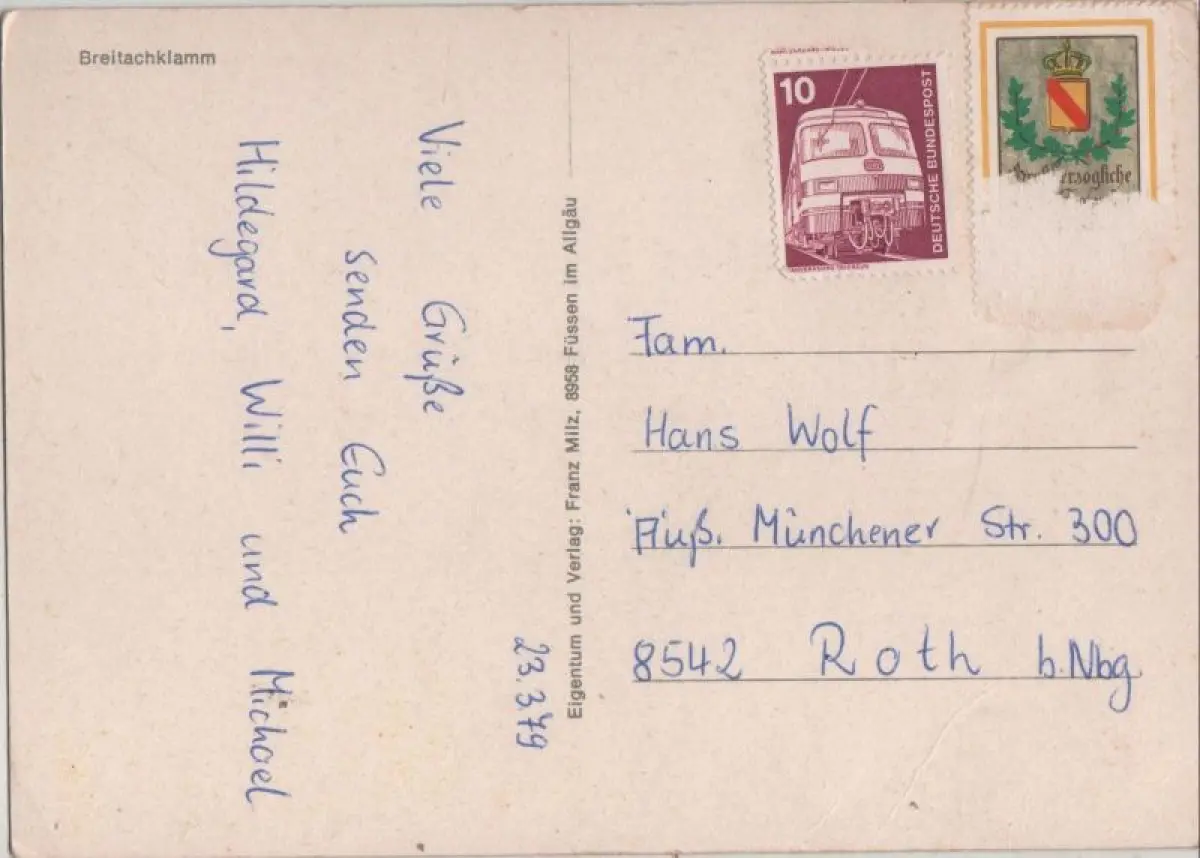 Breitachklamm
Viele Grüße
senden Euch
Hildegard, Willi und Michael
23.3.79
Eigentum und Verlag: Franz Milz, 8958 Füssen im Allgäu
10
DEUTSCHE BUNDESPOST
Fam.
Hans Wolf
Äuß. Münchener Str. 300
8542 Roth b. Nbg.